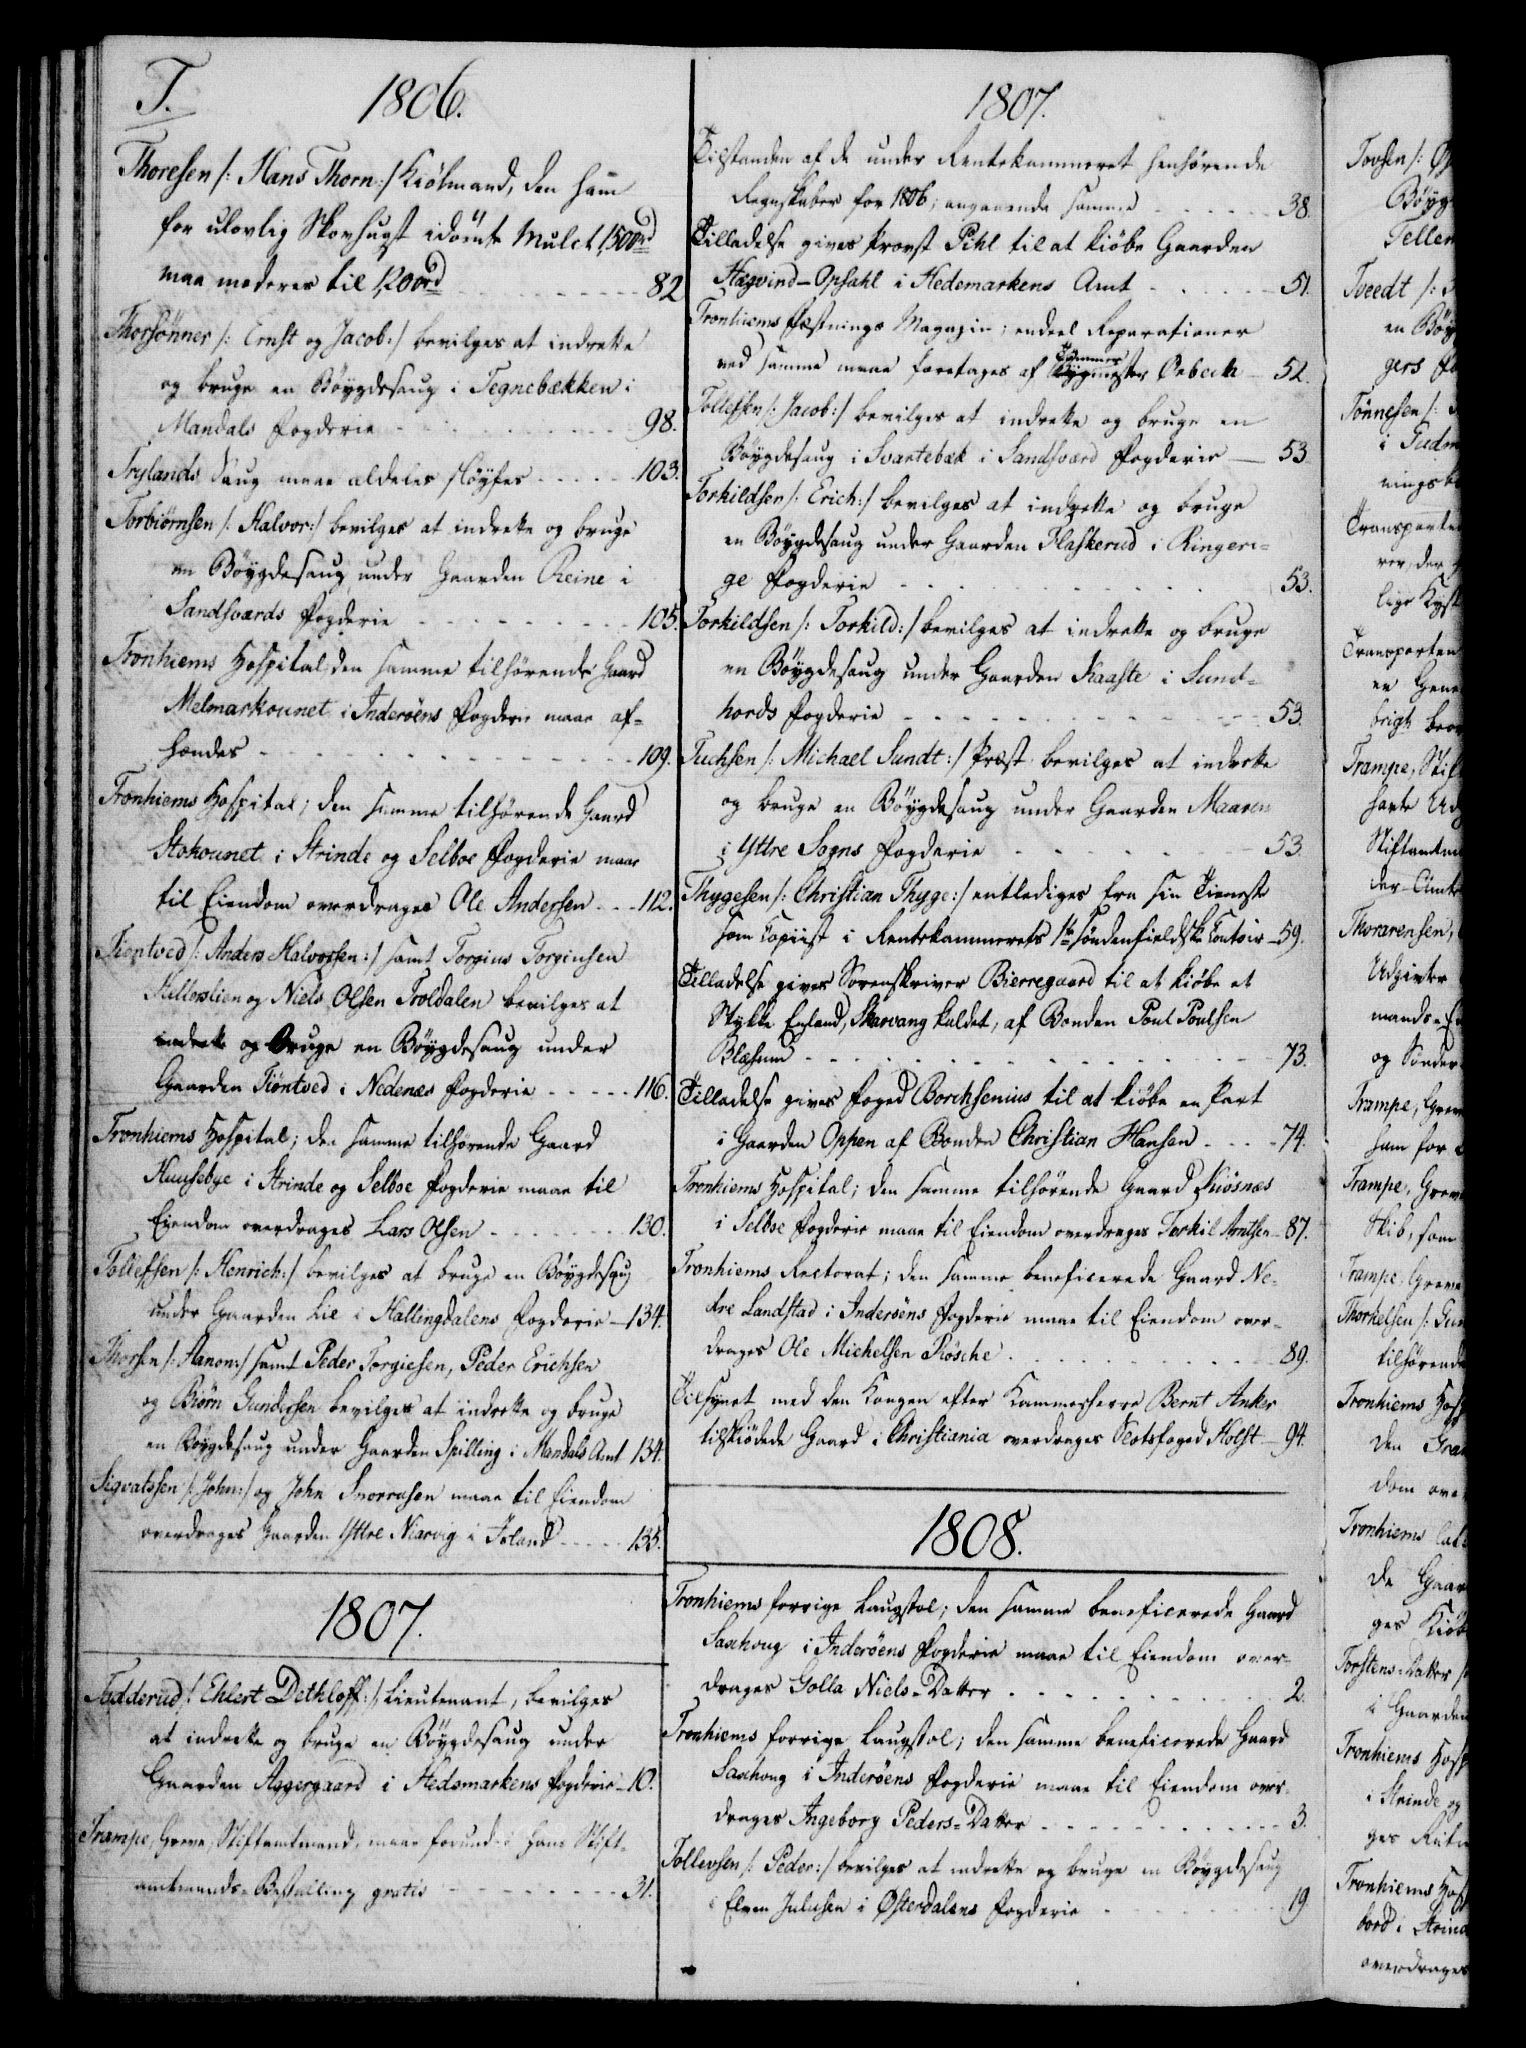 T.
1806.
Thoresen /: Hans Thorn :/ Kiøbmand, den ham
for ulovlig Skovhugst idømte Mulct 1500 rd
maa moderes til 1200 rd 82
Thorsønner /: Ernst og Jacob :/ bevilges at indrette
og bruge en Bøygdesaug i Tegnebækken i
Mandals Fogderie 98.
Trylands Saug maae aldeles sløyfes 103.
Torbiørnsen /: Halvor :/ bevilges at indrette og bruge
en Bøygdesaug under Gaarden Reine i
Sandsværds Fogderie 105.
Tronhiems Hospital; den samme tilhørende Gaard
Melmarkounet i Inderøens Fogderie maae af-
hændes 109.
Tronhiems Hospital; den samme tilhørende Gaard
Stokounet i Strinde og Selboe Fogderie maae
til Eiendom overdrages Ole Andersen 112.
Tientved /: Anders Halvorsen :/ samt Torgius Torgiusen
Skillerslien og Niels Olsen Troldalen bevilges at
indrette og bruge en Bøygdesaug under
Gaarden Tiøntved i Nedenæs Fogderie 116.
Tronhiems Hospital; den samme tilhørende Gaard
Huusebye i Strinde og Selboe Fogderie maae til
Eiendom overdrages Lars Olsen 130.
Tolleffsen /: Henrich :/ bevilges at bruge en Bøygdesaug
under Gaarden Lie i Hallingdalens Fogderie 134.
Thorsen /: Hanon :/ samt Peder Torgiesen, Peder Erichsen
og Biørn Gundersen bevilges at indrette og bruge
en Bøygdesaug under Gaarden Spilling i Mandals Amt 134.
Sigvatssen /: John :/ og John Snorrasen maae til Eiendom
overdrages Gaarden Yttre Niarvig i Island 135.
1807.
Tudderud /: Ehlert Dethloff :/ Lieutenant, bevilges
at indrette og bruge en Bøygdesaug under
Gaarden Aggergaard i Hedemarkens Fogderie 10.
Trampe, Greve, Stiftamtmand, maae forundes hans Stift-
amtmands-Bestalling gratis 31.
1807.
Tilstanden af de under Rentekammeret henhørende
Regnskaber for 1806; angaaende samme 38.
Tilladelse gives Provst Pihl til at kiøbe Gaarden
Hægvind-Opsahl i Hedemarkens Amt 51.
Tronhiems Fæstnings Magazin; endeel Reparationer
ved samme maae foretages af Tømmermester Orbech 52.
Tollefsen /: Jacob :/ bevilges at indrette og bruge en
Bøygdesaug i Svartebæk i Sandsværd Fogderie 53
Torkildsen /: Erich :/ bevilges at indrette og bruge
en Bøygdesaug under Gaarden Flaskerud i Ringeri-
ge Fogderie 53.
Torkildsen /: Torkild :/ bevilges at indrette og bruge
en Bøygdesaug under Gaarden Kaaste i Sund-
hords Fogderie 53.
Tuchsen /: Michael Sundt :/ Præst bevilges at indrette
og bruge en Bøygdesaug under Gaarden Maaren
i Yttre Sogns Fogderie 53.
Thygesen /: Christian Thyge :/ entlediges fra sin Tieneste
som Copiist i Rentekammerets 1ste søndenfieldske Contoir 59.
Tilladelse gives Sorenskriver Bierregaard til at kiøbe et
Stykke England, Skarvang kaldet, af Bonden Poul Poulsen
Blæsum 73.
Tilladelse gives Foged Borchsenius til at kiøbe en Part
i Gaarden Oppen af Bonden Christian Hansen 74.
Tronhiems Hospital; den samme tilhørende Gaard Kiøsnæs
i Selboe Fogderie maae til Eiendom overdrages Torkil Arntsen 87.
Tronhiems Rectorat; den samme beneficerede Gaard Ne-
dre Landstad i Inderøens Fogderie maae til Eiendom over-
drages Ole Michelsen Røsche 89.
Tilsynet med den Kongen efter Kammerherre Bernt Anker
tilskiødede Gaard i Christiania overdrages Slotsfoged Holst 94.
1808.
Tronhiems forrige Laugstol; den samme beneficerede Gaard
Saxhoug i Inderøens Fogderie maae til Eiendom over-
drages Golla Niels-Datter 2.
Tronhiems forrige Laugstol; den samme beneficerede Gaard
Saxhoug i Inderøens Fogderie maae til Eiendom over-
drages Ingeborg Peders-Datter 3.
Tollevsen /: Peder :/ bevilges at indrette og bruge en Bøygdesaug
i Elven Julusen i Østerdalens Fogderie 19
Tovsen /:
Bøyg
Tellem
Tveedt /:
en Bøy
gers Fo
Tønnesen /:
i Gudm
nings
Transporten
rer, der
lige Kyst
Transporten
er Gene
brigt
Trampe, Stift
Stiftamtm
der Amt
Thorarensen,
Udgivter
mands-
og Sønder
Trampe, Greve
ham for
Trampe, Greve
Skib, som
Trampe, Greve
Thorkelsen /: Gun
tilhørende
Tronhiems Hosp
den
dom over
Tronhiems lat
de Gaar
ges Kiøb
Torstens-Datter /:
i Gaarden
Tronhiems Hosp
i Strinde og
ges
Tronhiems Hosp
i Strind
overdrages